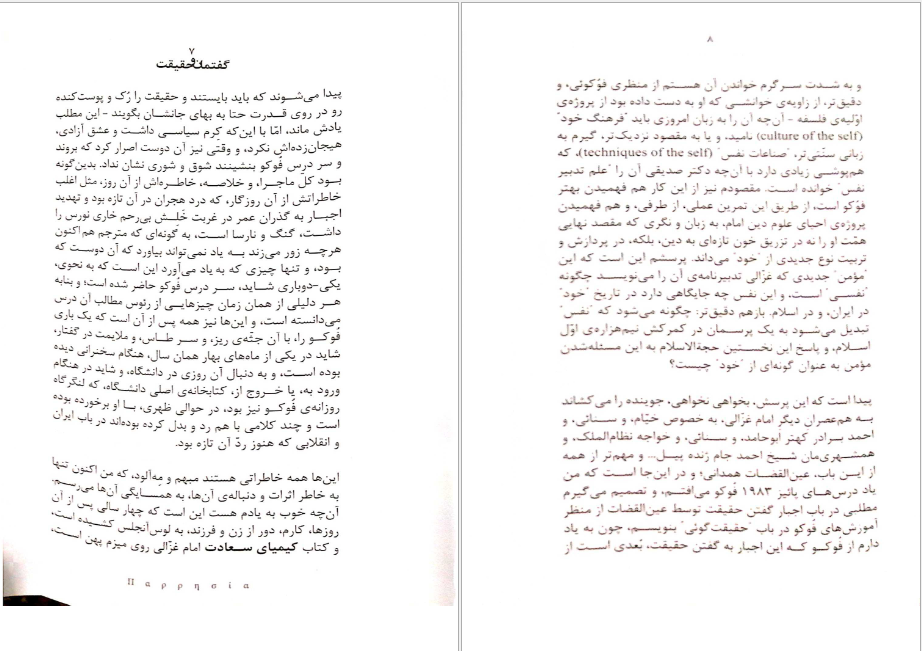 ۷
گفتمان و حقیقت
پیدا می‌شوند که باید بایستند و حقیقت را رُک و پوست‌کنده
رو در روی قدرت حتا به بهای جانشان بگویند – این مطلب
یادش ماند، امّا با این‌که کِرم سیاسی داشت و عشق آزادی،
هیجان‌زده‌اش نکرد، و وقتی نیز آن دوست اصرار کرد که بروند
و سر درس فُوکو بنشینند شوق و شوری نشان نداد. بدین‌گونه
بود کلّ ماجرا، و خلاصه، خاطره‌اش از آن روز، مثل اغلب
خاطراتش از آن روزگار، که درد هجران در آن تازه بود و تهدید
اجبار به گذران عمر در غربت خَلِش بی‌رحم خاری نورس را
داشت، گنگ و نارسا است، به گونه‌ای که مترجم هم‌اکنون
هرچه زور می‌زند به یاد نمی‌تواند بیاورد که آن دوست که
بود، و تنها چیزی که به یاد می‌آورد این است که به نحوی،
یکی-دوباری شاید، سر درس فُوکو حاضر شده است؛ و بنابه
هر دلیلی از همان زمان چیزهایی از رئوس مطالب آن درس
می‌دانسته است، و این‌ها نیز همه پس از آن است که یک باری
فُوکو را، با آن جثّه‌ی ریز، و سر طاس، و ملایمت در گفتار،
شاید در یکی از ماه‌های بهار همان سال، هنگام سخنرانی دیده
بوده است، و به دنبال آن روزی در دانشگاه، و شاید در هنگام
ورود به، یا خروج از، کتابخانه‌ی اصلی دانشگاه، که لنگرگاه
روزانه‌ی فُوکو نیز بود، در حوالی ظهری، با او برخورده بوده
است و چند کلامی با هم رد و بدل کرده بوده‌اند در باب ایران
و انقلابی که هنوز ردّ آن تازه بود.
این‌ها همه خاطراتی هستند مبهم و مِه‌آلود، که من اکنون تنها
به خاطر اثرات و دنباله‌ی آن‌ها، به همسایگی آن‌ها می‌رسم.
آن‌چه خوب به یادم هست این است که چهار سالی پس از آن
روزها، کارم، دور از زن و فرزند، به لوس‌آنجلس کشیده است،
و کتاب کیمیای سعادت امام غزّالی روی میزم پهن است،
Π α ρ ρ η σ ί α
۸
و به شدت سرگرم خواندن آن هستم از منظری فوُکوئی، و
دقیق‌تر، از زاویه‌ی خوانشی که او به دست داده بود از پروژه‌ی
اوّلیه‌ی فلسفه – آن‌چه آن را به زبان امروزی باید "فرهنگ خود"
(culture of the self) نامید، و یا به مقصود نزدیک‌تر، گیرم به
زبانی سنّتی‌تر، "صناعات نفس" (techniques of the self)، که
هم‌پوشی زیادی دارد با آن‌چه دکتر صدیقی آن را "علم تدبیر
نفس" خوانده است. مقصودم نیز از این کار هم فهمیدن بهتر
فوُکو است، از طریق این تمرین عملی، از طرفی، و هم فهمیدن
پروژه‌ی احیای علوم دین امام، به زبان و نگری که مقصد نهایی
همّت او را نه در تزریق خون تازه‌ای به دین، بلکه، در پردازش و
تربیت نوع جدیدی از "خود" می‌داند. پرسشم این است که این
"مؤمن" جدیدی که غزّالی تدبیرنامه‌ی آن را می‌نویسد چگونه
"نفسی" است، و این نفس چه جایگاهی دارد در تاریخ "خود"
در ایران، و در اسلام. بازهم دقیق‌تر: چگونه می‌شود که "نفس"
تبدیل می‌شود به یک پرسمان در کمرکش نیم‌هزاره‌ی اوّل
اسلام، و پاسخ این نخستین حجةالاسلام به این مسئله‌شدن
مؤمن به عنوان گونه‌ای از "خود" چیست؟
پیدا است که این پرسش، بخواهی نخواهی، جوینده را می‌کشاند
به هم‌عصران دیگر امام غزّالی، به خصوص خیّام، و سنائی، و
احمد برادر کهتر ابوحامد، و سنائی، و خواجه نظام‌الملک، و
همشهری‌مان شیخ احمد جام زنده پیل... و مهم‌تر از همه
از این باب، عین‌القضات همدانی؛ و در این‌جا است که من
یاد درس‌های پائیز ۱۹۸۳ فُوکو می‌افتم، و تصمیم می‌گیرم
مطلبی در باب اجبار گفتن حقیقت توسط عین‌القضات از منظر
آموزش‌های فُوکو در باب "حقیقت‌گوئی" بنویسم، چون به یاد
دارم از فُوکو که این اجبار به گفتن حقیقت، بُعدی است از